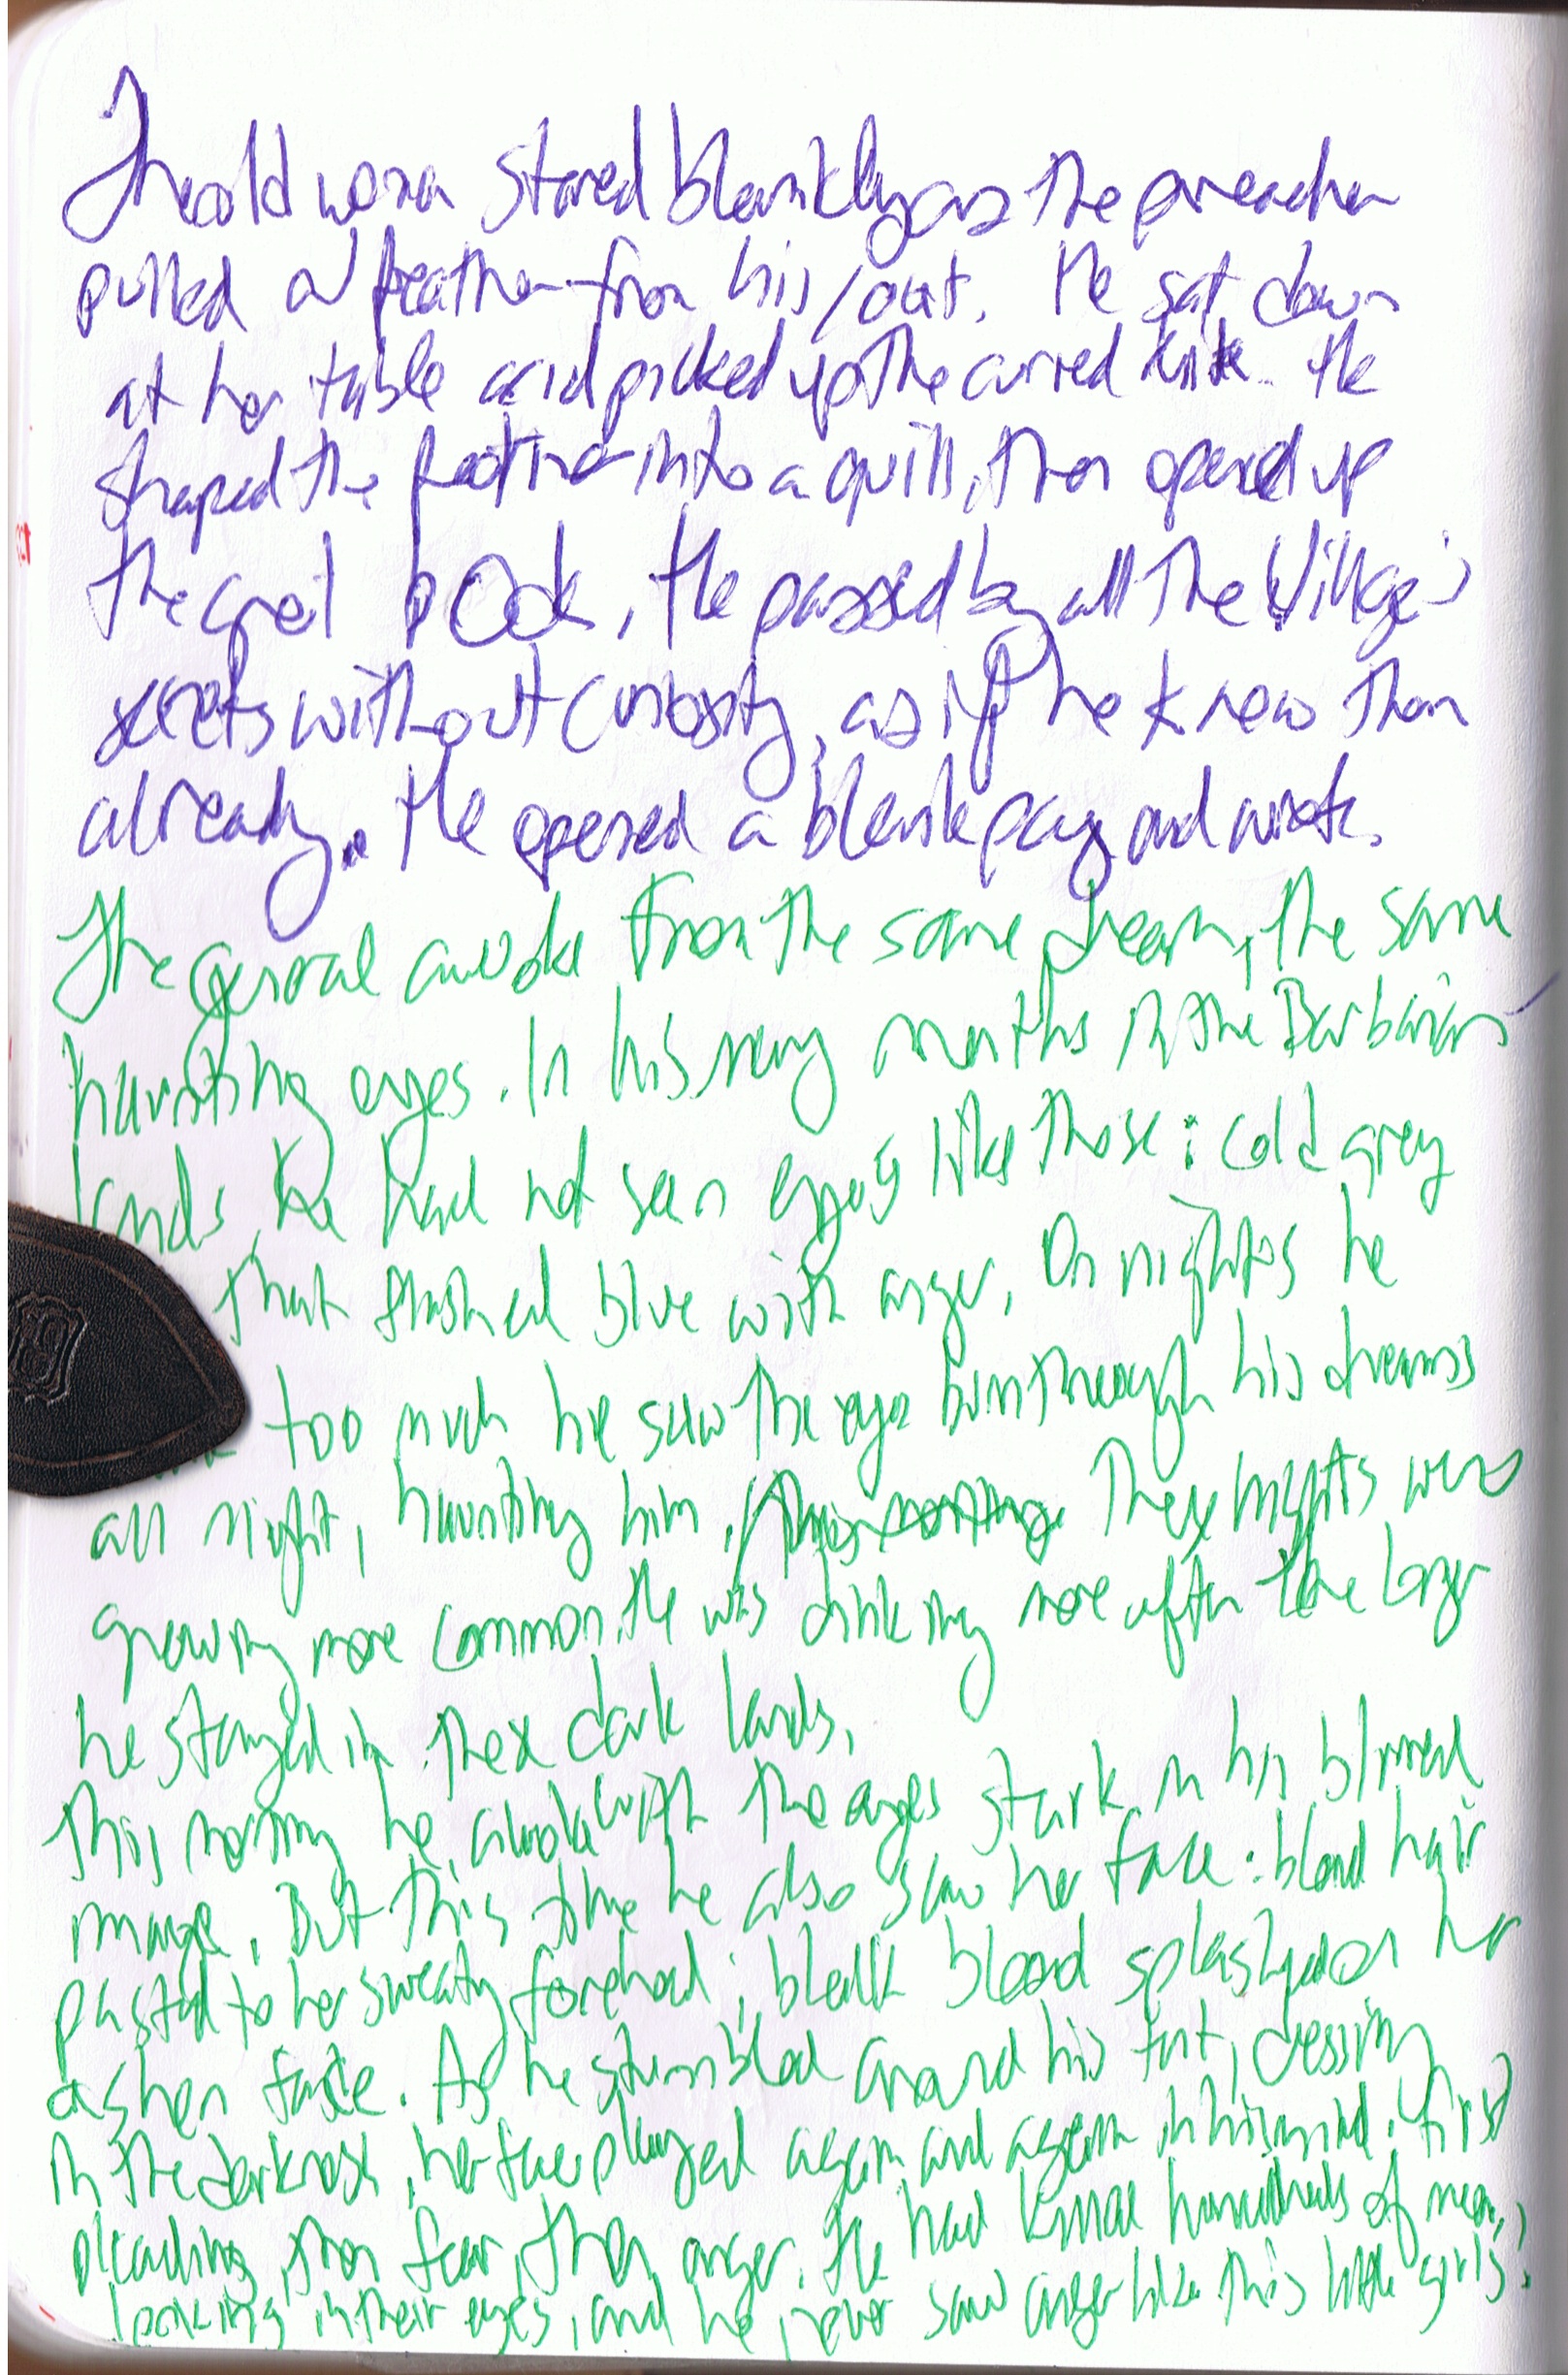 The old woman stared blankly as the preacher
pulled a feather from his coat. He sat down
at her table and picked up the curved knife. He
shaped the feather into a quill, then opened up
the great book. He passed by all the village's
secrets without curiosity, as if he knew them
already. He opened a blank page and wrote.
The general awoke from the same dream, the same
haunting eyes. In his many months in the Barbarian
lands, he had not seen eyes like those: cold grey
that flashed blue with anger. On nights he
too much he saw the eyes burn through his dreams
all night, haunting him. These nights were
growing more common. He was drinking more after the longer
he stayed in these dark lands.
This morning he awoke with the eyes stark in his blurred
image. But this time he also saw her face: blond hair
pasted to her sweaty forehead; black blood splashed on her
ashen face. As he stumbled around his tent, dressing
in the darkness, her face played again and again in his mind: first
pleading, then fear, then anger. He had killed hundreds of men,
looking in their eyes, and he never saw anger like this little girls.